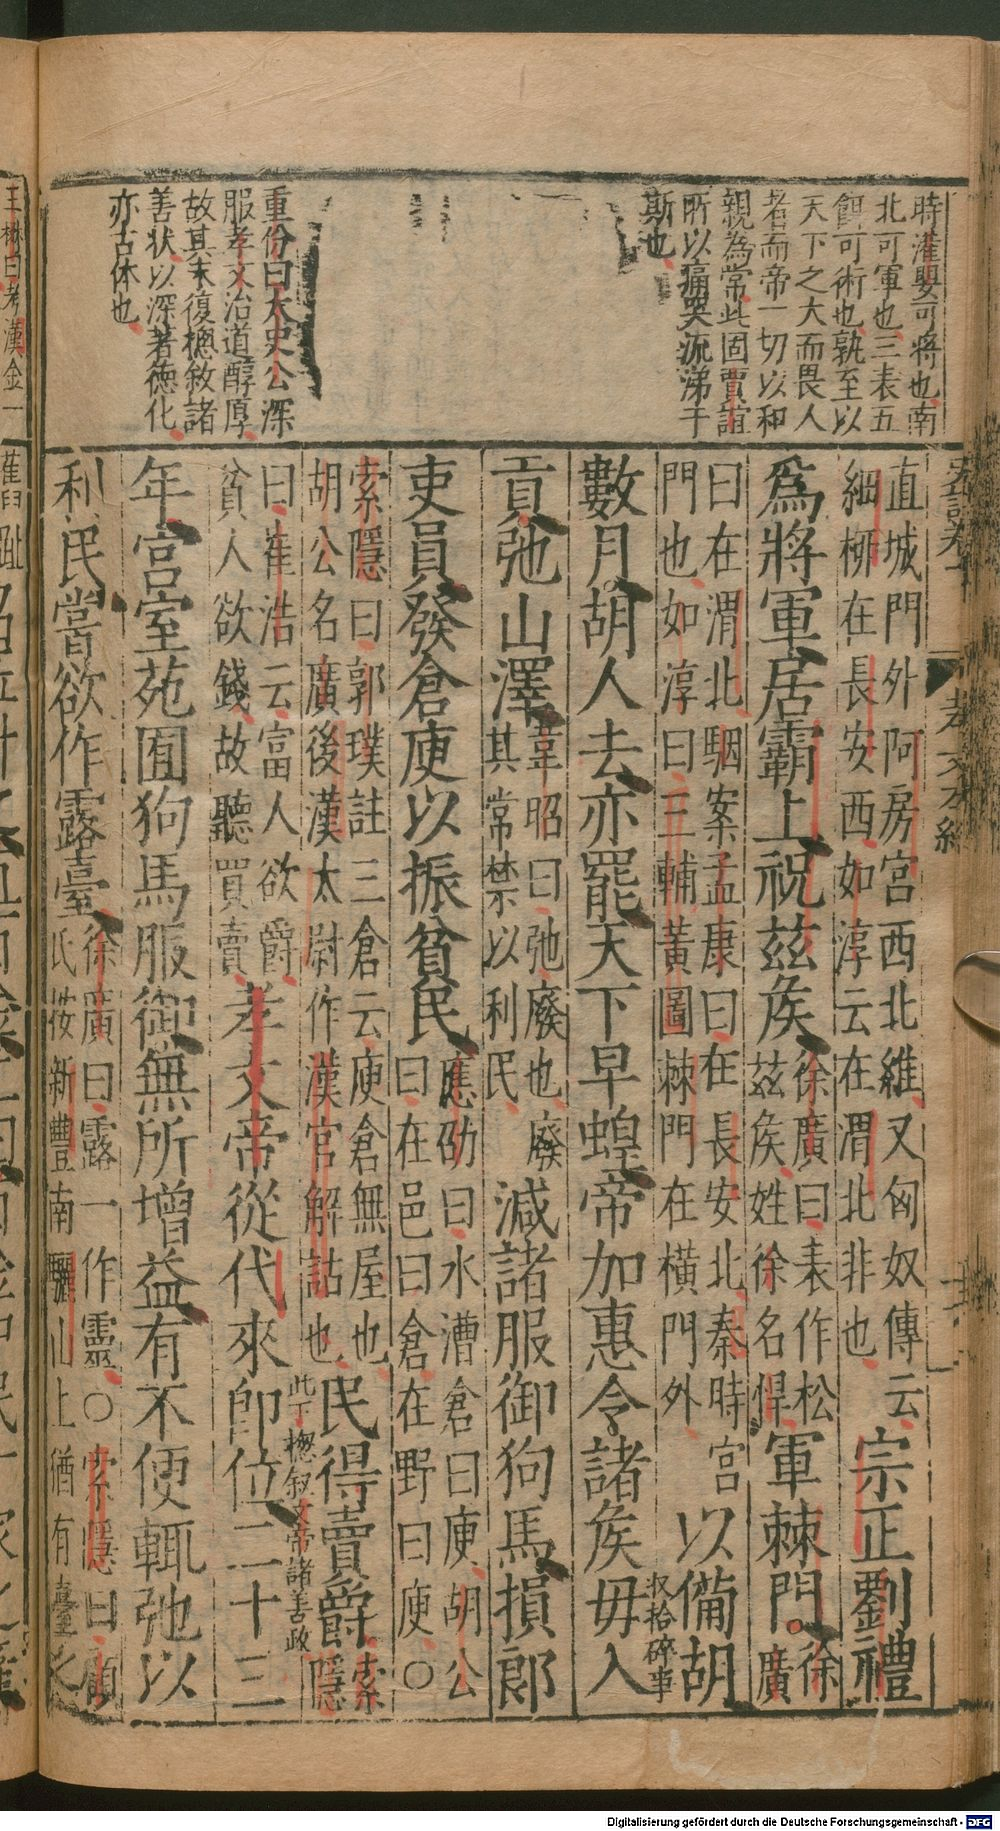 時灌嬰可將也南
北可軍也三表五
餌可術也孰至以
天下之大而畏人
者而帝一切以和
親為常此固賈誼
所以痛哭流涕于
斯也
重份曰太史公深
服孝文治道醇厚
故其末復總敘諸
善狀以深著德化
亦古体也
史記卷十
孝文本紀
直城門外阿房宮西北維又匈奴傳云
細柳在長安西如淳云在渭北非也
宗正劉禮
爲將軍居霸上祝茲侯
徐廣曰表作松
茲侯姓徐名悍
軍棘門
徐廣
曰在渭北駰案孟康曰在長安北秦時宮
門也如淳曰三輔黃圖棘門在橫門外
以備胡
收拾碎事
數月胡人去亦罷天下旱蝗帝加惠令諸侯毋入
貢弛山澤
韋昭曰弛廢也廢
其常禁以利民
減諸服御狗馬損郎
吏員發倉庾以振貧民
應劭曰水漕倉曰庾胡公
曰在邑曰倉在野曰庾〇
索隱曰郭璞註三倉云庾倉無屋也
胡公名廣後漢太尉作漢官解詁也
民得賣爵
索
隱
此下總叙文帝諸善政
曰崔浩云富人欲爵
貧人欲錢故聽買賣
孝文帝從代來即位二十三
年宮室苑囿狗馬服御無所增益有不便輒弛以
利民嘗欲作露臺
徐廣曰露一作靈〇索隱曰顧
氏按新豐南驪山上猶有臺之
Digitalisierung gefördert durch die Deutsche Forschungsgemeinschaft - DFG